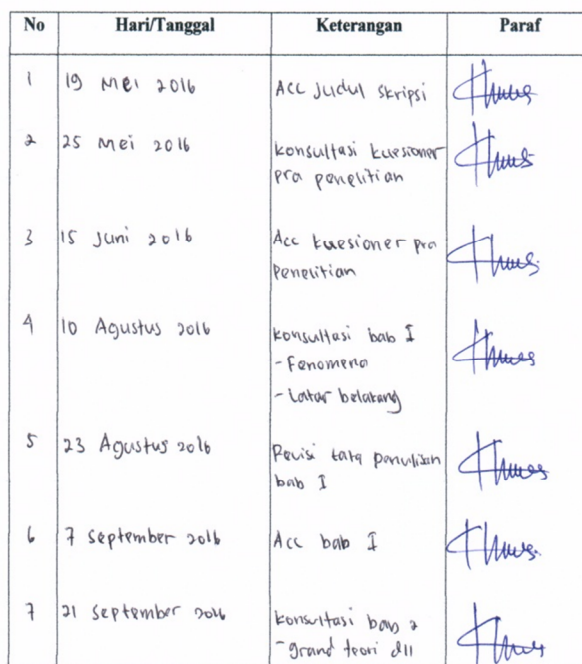 No Hari/Tanggal Keterangan Paraf
1 19 Mei 2016 Acc Judul Skripsi
2 25 Mei 2016 konsultasi kuesioner
pra penelitian
3 15 Juni 2016 Acc kuesioner pra
penelitian
4 10 Agustus 2016 konsultasi bab I
- Fenomena
- Latar belakang
5 23 Agustus 2016 Revisi tata penulisan
bab I
6 7 September 2016 Acc bab I
7 21 September 2016 konsultasi bab 2
- grand teori dll